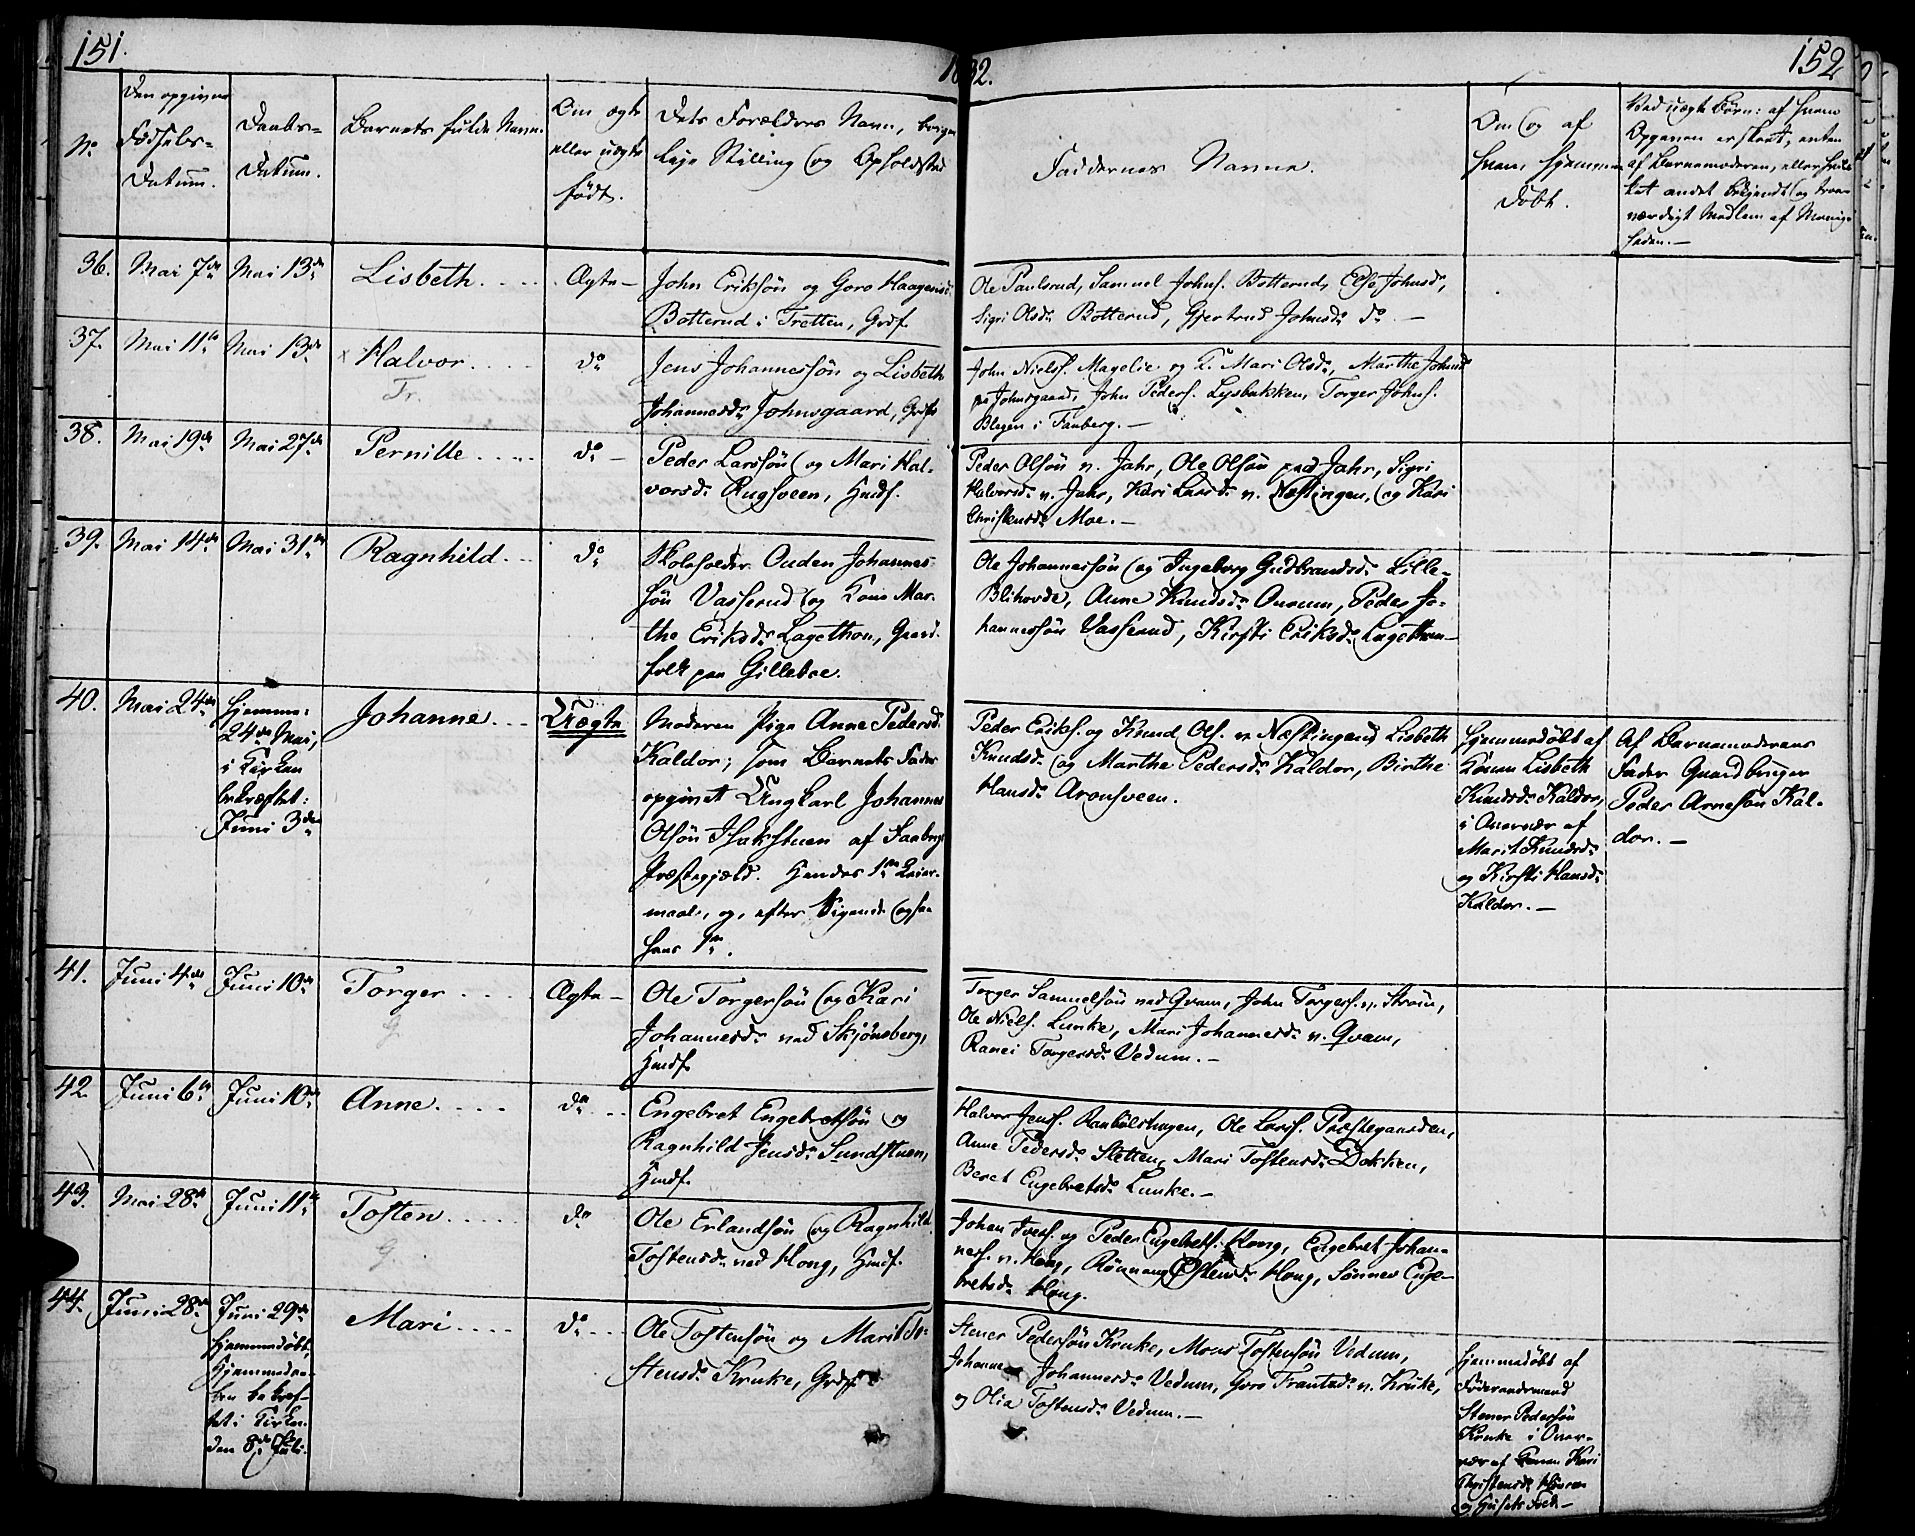 151.
1832.
152
No
Den opgivne
Fødsels-
Datum.
Daabs-
Datum.
Barnets fulde Navn.
Om ægte
eller uægte
født.
Dets Forældres Navn, borger-
lige Stilling og Opholdsted
Faddernes Navne.
Om og af
hvem hjemme
døbt.
Ved uægte Børn: af hvem
Opgaven er skeet, enten
af Barnemoderen, eller hvil-
ket andet bekjendt og trov-
værdigt Medlem af Menig-
heden.-
36.
Mai 7de
Mai 13de
Lisbeth....
Ægte-
John Eriksøn og Goro Haagensd.
Botterud i Tretten, Grdf.
Ole Paulsrud, Samuel Johns. Botterud, Else Johnsdr,
Sigri Olsdr Botterud, Gjertrud Johnsdr do.-
37.
Mai 11te
Mai 13de
x Halvor....
Tr.
do
Jens Johannessøn og Lisbeth
Johannesdr Johnsgaard, Grdf.
John Niels. Magelie og K. Mari Olsdr, Marthe Johnsd
pr Johnsgaard, John Peders. Lysbakken, Torger Johns.
i Faaberg.-
38.
Mai 19de
Mai 27de
Pernille....
do-
Peder Larssøn og Mari Hal-
vorsdr Rugsveen, Hmdf.
Peder Olsøn n. Jahr, Ole Olsøn ved Jahr, Sigri
Halvorsdr n. Jahr, Kari Larsdr n. Næstingen, og Kari
Christensdr Moe.-
39.
Mai 14de
Mai 31te
Ragnhild...
do
Skoleholder Ouden Johannes-
søn Vasserud og Kone Mar-
the Eriksdr Lagethon, Gaard-
folk paa Gilleboe.
Ole Johannessøn og Ingeborg Gudbrandsdr Lille-
Blihovde, Anne Knudsdr Onsum, Peder Jo-
hannessøn Vasserud, Kirsti Eriksdr Lagethon-
40.
Mai 24de
hjemme:
24de Mai,
i Kirken
bekræftet:
Juni 3de
Johanne...
Uægte
Moderen Pige Anne Pedersd.
Kaldor; som Barnets Fader
opgivet Ungkarl Johannes
Olsøn Isakstuen af Faaberg
Præstegjæld. Hendes 1ste Leier-
maal, og, efter Sigende ogsaa
hans 1ste.
Peder Eriks. og Knud Ols. n. Næstingen, Lisbeth
Knudsdr og Marthe Pedersdr Kaldor, Birthe
Hansdr Aronsveen.
Hjemmedøbt af
Konen Lisbeth
Knudsdr Kaldor,
i Overvær af
Marit Knudsdr
og Kirsti Hansdr
Kaldor.-
Af Barnemoderens
Fader Gaardbruger
Peder Arnesøn Kal-
dor.-
41.
Juni 4de
Juni 10de
Torger....
G.
Ægte-
Ole Torgersøn og Kari
Johannesdr ved Skjønsberg,
Hmdf.
Torger Samuelsøn ved Qvam, John Torgers. n. Strøm,
Ole Niels. Lunke, Mari Johannesdr n. Qvam,
Ranei Torgersdr Vedum.-
42.
Juni 6te
Juni 10de
Anne....
do...
Engebret Engebretsøn og
Ragnhild Jensdr Sundstuen,
Hmdf.
Halvor Jens. Ole Lars. Præstegaarden,
Anne Pedersdr Sletten, Mari Tostensdr Dokken,
Beret Engebretsdr Lunke.-
43.
Mai 28de
Juni 11te
Tosten.....
G.
do
Ole Erlandsøn og Ragnhild
Tostensdr ved Houg, Hmdf.
Johan Ivers. og Peder Engebrets. Houg, Engebret Johan-
nes. n. Houg, Rønnaug Ostensdr Houg, Sønnev Enge-
bretsdr Houg.
44.
Juni 28de
Juni 29de
hjemmedøbt,
Hjemmedaa-
ben bekræf-
tet i Kirken
den 8de Juli.
Mari....
do...
Ole Tostensøn og Marit To-
stensdr Kruke, Grdf.
Stener Pedersøn Kruke, Mons Tostensøn Vedum,
Johanne Johannesdr Vedum, Goro Frantsdr n. Kruke,
og Olia Tostensdr Vedum.-
Hjemmedøbt af
Føderaadsmand
Stener Pedersøn
Kruke i Over-
vær af Konen Kari
Christensdr